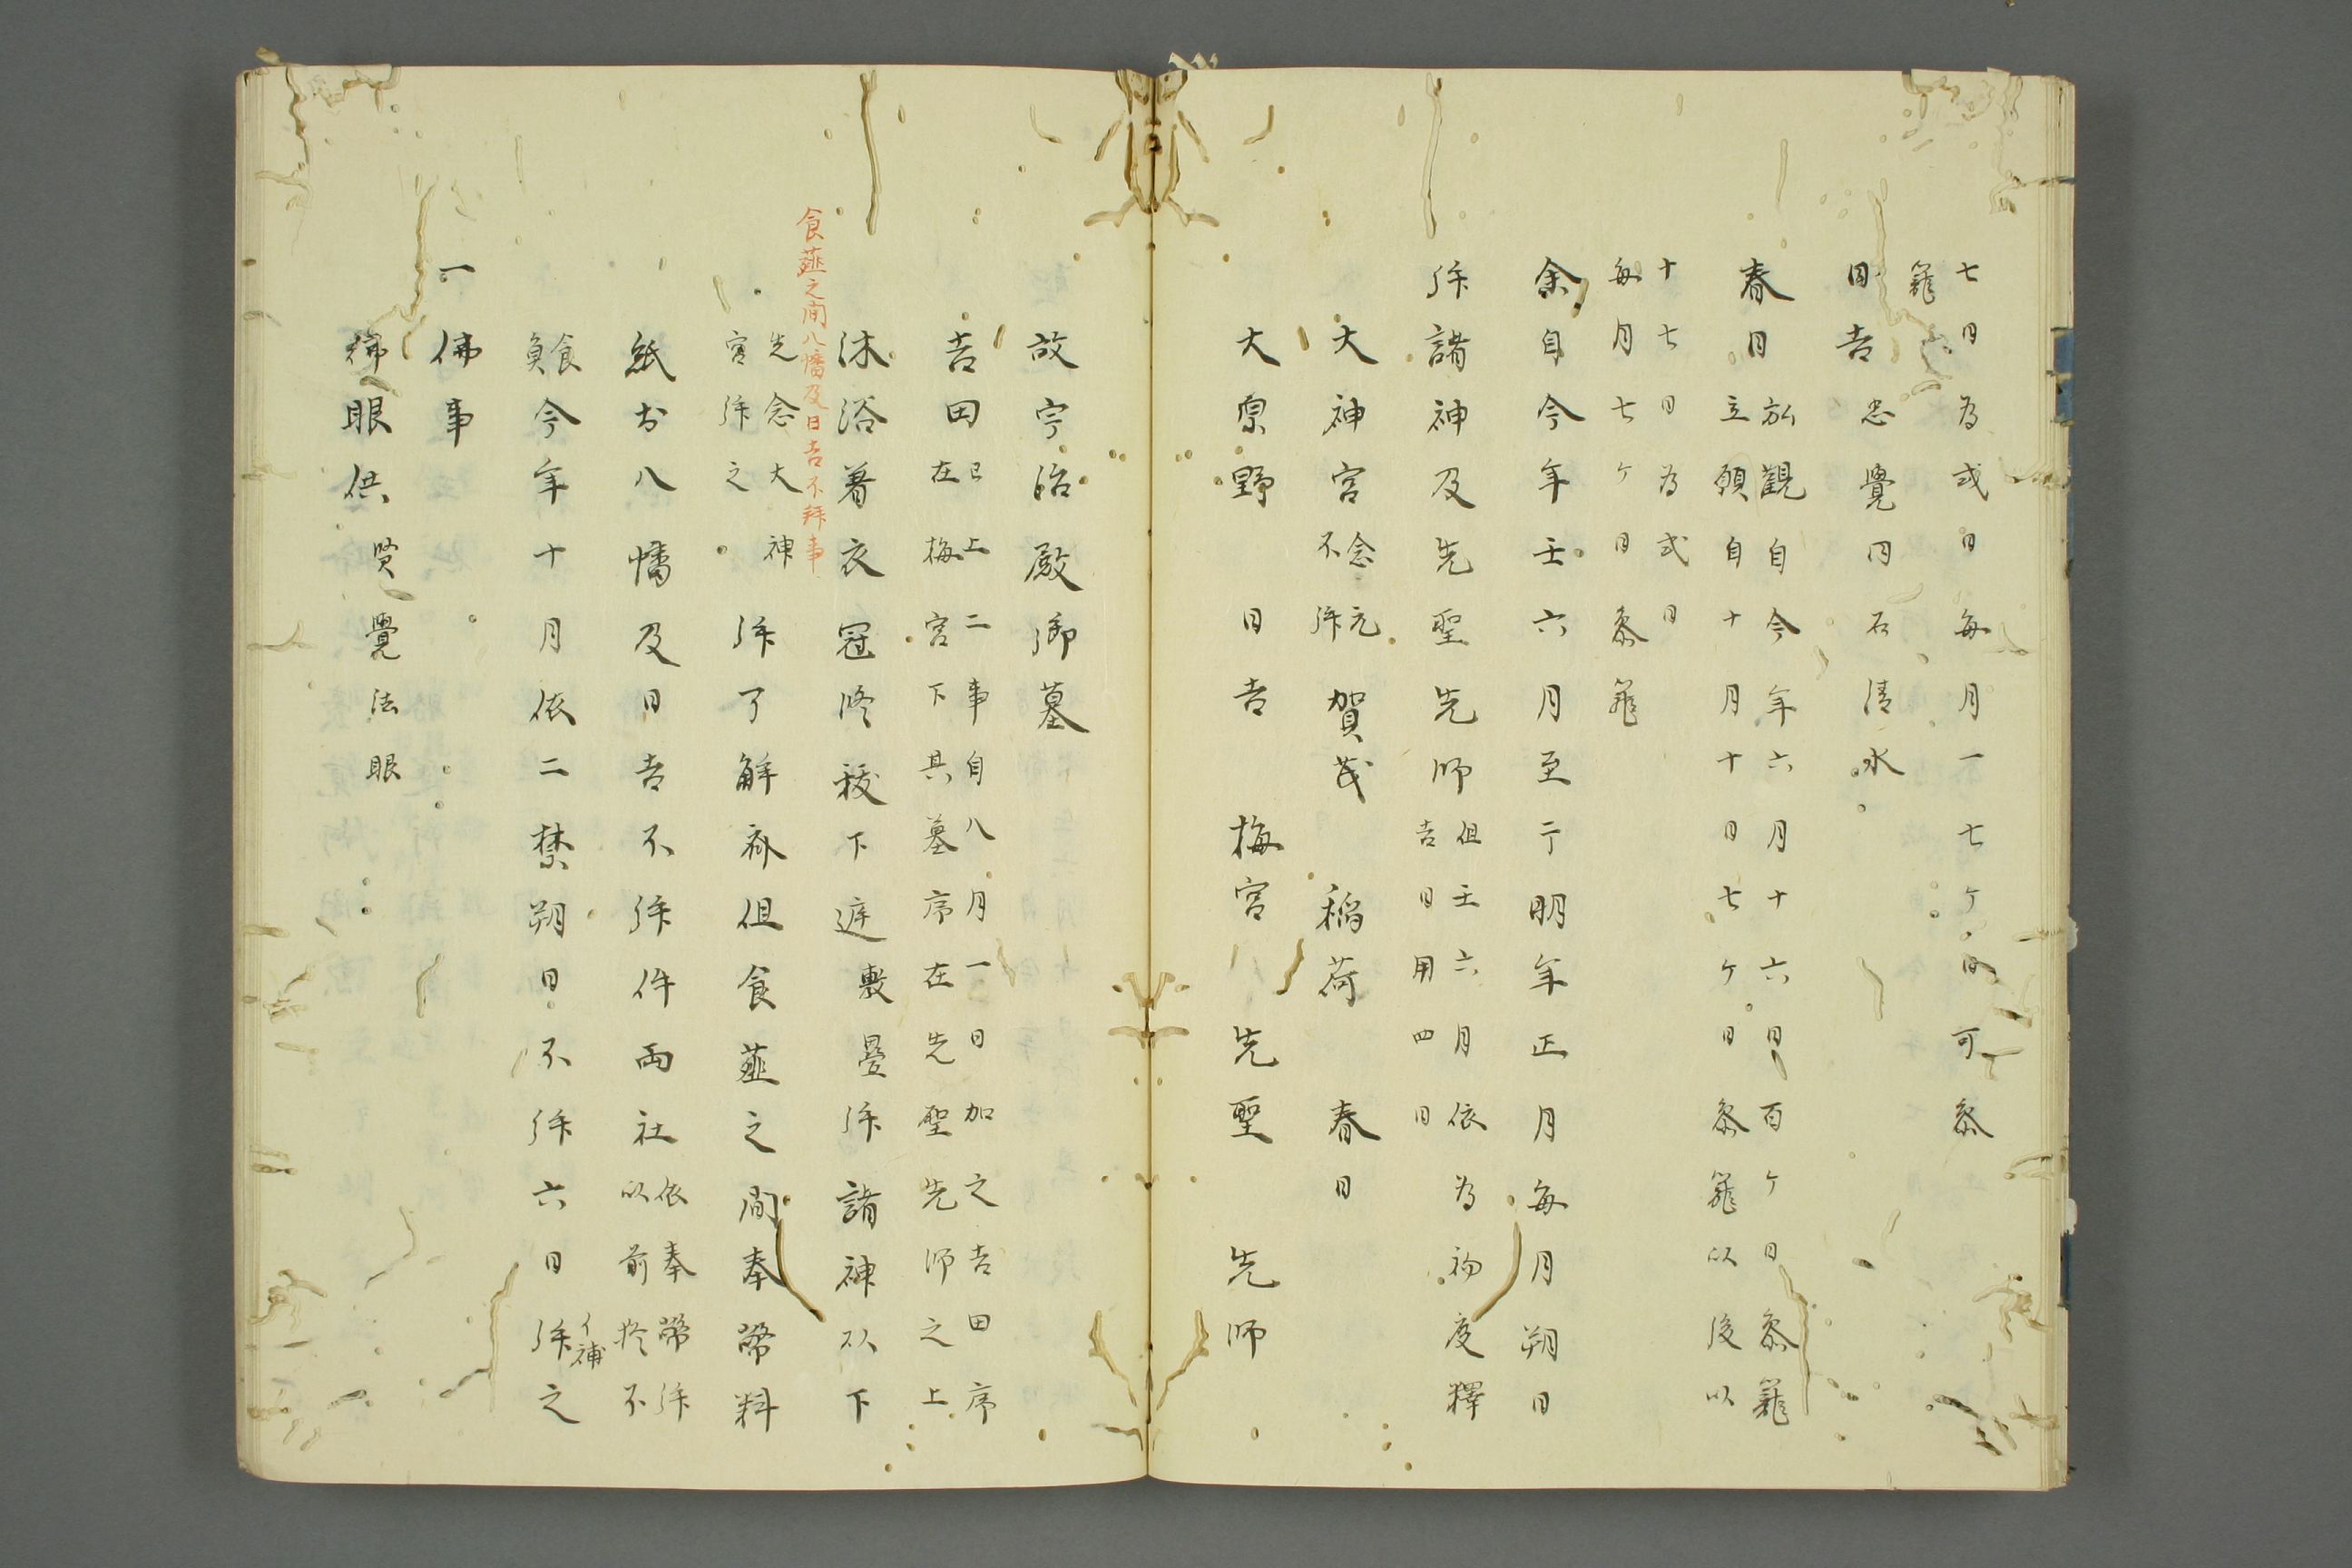 七日為或日每月一七ケ日可參
籠
日吉 忠覺同 石清水
春日 欲觀自今年六月十六日百ケ日參籠
立願自十月十日七ケ日參籠以後以
十七日為或日
每月七ケ日參籠
余自今年壬六月至于明年正月每月朔日
拜諸神及先聖先師 但壬六月依為初度擇
吉日用四日
大神宮 念元
不拜 賀茂 稻荷 春日
大原野 日吉 梅宮 先聖 先師
故宇治殿御墓
吉田 已上二事自八月一日加之吉田序
在梅宮下其墓序在先聖先師之上
沐浴着衣冠修祓下庭敷疊拜諸神以下
食薤之間八幡及日吉不拜事
先念大神
宮拜之 拜了解祓但食薤之間奉幣料
紙於八幡及日吉不拜件兩社 依奉幣拜
以前於不
食
負 今年十月依二禁朔日不拜六日拜之
イ補
一佛事
佛眼供 賢覺法眼